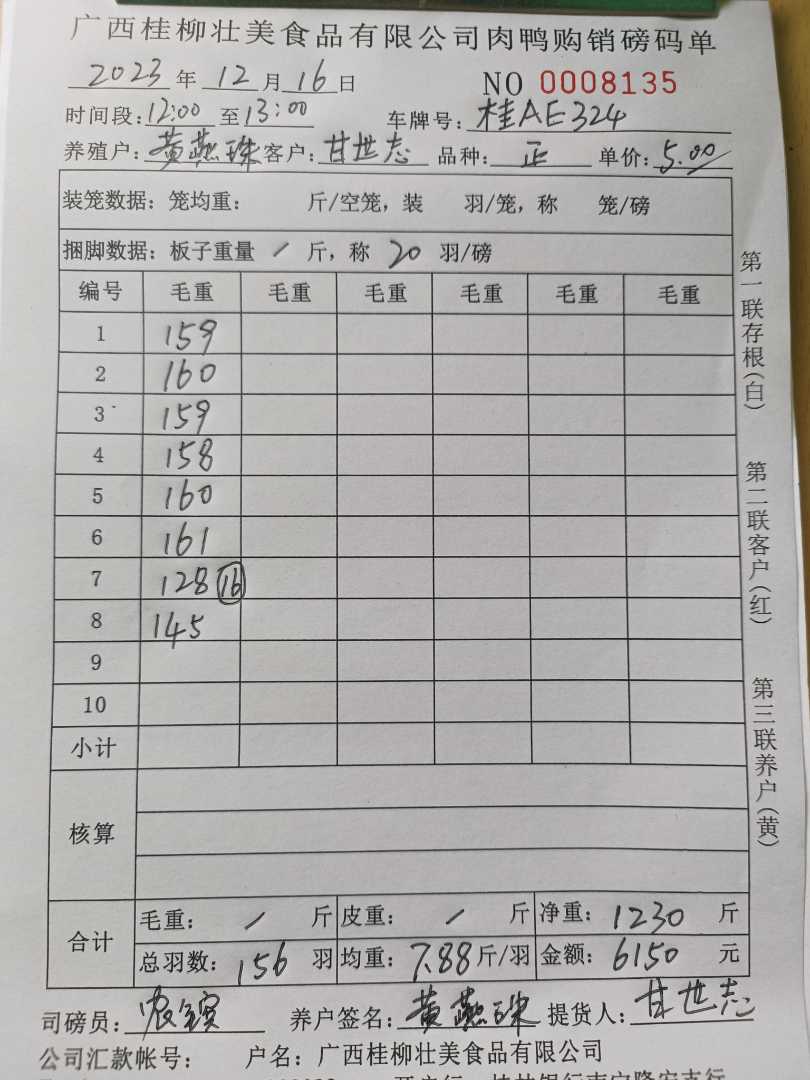 广西桂柳壮美食品有限公司肉鸭购销磅码单
2023年12月16日 NO 0008135
时间段:12:00至13:00 车牌号:桂AE324
养殖户:黄燕珠客户:甘世志 品种:正 单价:5.00
装笼数据:笼均重: 斤/空笼,装 羽/笼,称 笼/磅
捆脚数据:板子重量 / 斤,称 20 羽/磅
编号 毛重 毛重 毛重 毛重 毛重 毛重
1 159
2 160
3 159
4 158
5 160
6 161
7 128 16
8 145
9
10
小计
核算
合计 毛重: / 斤 皮重: / 斤 净重: 1230 斤
总羽数: 156 羽 均重: 7.88 斤/羽 金额: 6150 元
司磅员: 养户签名:黄燕珠 提货人:甘世志
公司汇款帐号: 户名:广西桂柳壮美食品有限公司
第一联存根(白)
第二联客户(红)
第三联养户(黄)